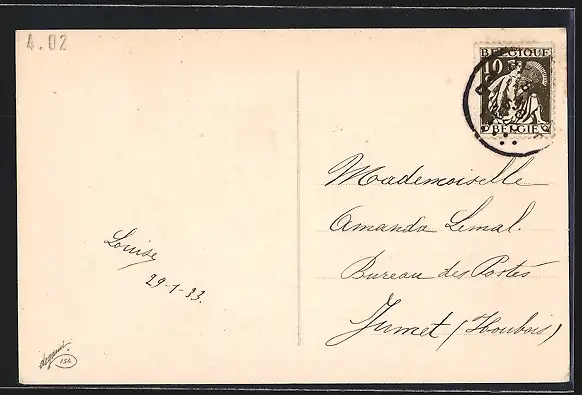 4.02
BELGIQUE
10
BELGIË
Mademoiselle
Amanda Lemal.
Bureau des Postes
Jumet (Houbois)
Louise
29-1-33.
154